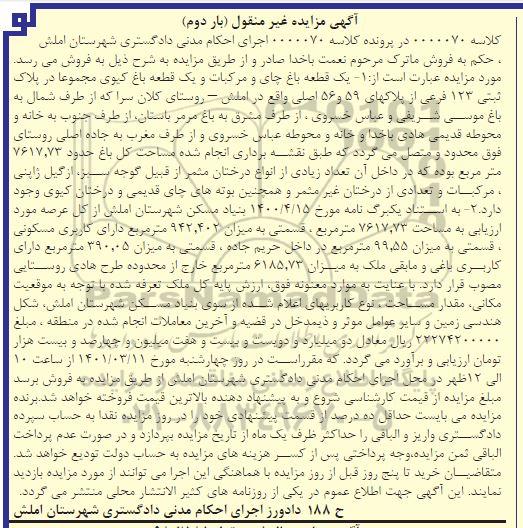 آگهی مزایده غیر منقول (بار دوم)
کلاسه ۰۰۰۰۰۷۰ در پرونده کلاسه ۰۰۰۰۰۷۰ اجرای احکام مدنی دادگستری شهرستان املش
، حکم به فروش ماترک مرحوم نعمت باخدا صادر و از طریق مزایده به شرح ذیل به فروش می رسد.
مورد مزایده عبارت است از:۱- یک قطعه باغ چای و مرکبات و یک قطعه باغ کیوی مجموعا در پلاک
ثبتی ۱۲۳ فرعی از پلاکهای ۵۹ و۵۶ اصلی واقع در املش – روستای کلان سرا که از طرف شمال به
باغ موسی شریفی و عباس خسروی ، از طرف مشرق به باغ مرمر باستان، از طرف جنوب به خانه و
محوطه قدیمی هادی باخدا و خانه و محوطه عباس خسروی و از طرف مغرب به جاده اصلی روستای
فوق محدود و متصل می گردد که طبق نقشه برداری انجام شده مساحت کل باغ حدود ۷۶۱۷,۷۳
متر مربع بوده که در داخل آن تعداد زیادی از انواع درختان مثمر از قبیل گوجه سبز، ازگیل ژاپنی
، مرکبات و تعدادی از درختان غیر مثمر و همچنین بوته های چای قدیمی و درختان کیوی وجود
دارد.۲- به استناد یکبرگ نامه مورخ ۱۴۰۰/۴/۱۵ بنیاد مسکن شهرستان املش از کل عرصه مورد
ارزیابی به مساحت ۷۶۱۷,۷۳ مترمربع ، قسمتی به میزان ۹۴۲,۴۰۲ مترمربع دارای کاربری مسکونی
، قسمتی به میزان ۹۹,۵۵ مترمربع در داخل حریم جاده ، قسمتی به میزان ۳۹۰,۰۵ مترمربع دارای
کاربری باغی و مابقی ملک به میزان ۶۱۸۵,۷۳ مترمربع خارج از محدوده طرح هادی روستایی
مصوب قرار دارد. با عنایت به موارد معنونه فوق، ارزش پایه کل ملک تعرفه شده با توجه به موقعیت
مکانی، مقدار مساحت ، نوع کاربریهای اعلام شده از سوی بنیاد مسکن شهرستان املش، شکل
هندسی زمین و سایر عوامل موثر و ذیمدخل در قضیه و آخرین معاملات انجام شده در منطقه ، مبلغ
۲۲۲۷۴۲۰۰۰۰۰ ریال معادل دو میلیارد و دویست و بیست و هفت میلیون و چهارصد و بیست هزار
تومان ارزیابی و برآورد می گردد. که مقرراست در روز چهارشنبه مورخ ۱۴۰۱/۰۳/۱۱ از ساعت ۱۰
الی ۱۲ظهر در محل اجرای احکام مدنی دادگستری شهرستان املش از طریق مزایده به فروش برسد
مبلغ مزایده از قیمت کارشناسی شروع و به پیشنهاد دهنده بالاترین قیمت فروخته خواهد شد.برنده
مزایده می بایست حداقل ده درصد از قسمت پیشنهادی خود را در روز مزایده نقدا به حساب سپرده
دادگستری واریز و الباقی را حداکثر ظرف یک ماه از تاریخ مزایده بپردازد و در صورت عدم پرداخت
الباقی ثمن مزایده،وجه پرداختی پس از کسر هزینه های مزایده به حساب دولت تودیع خواهد شد.
متقاضیان خرید تا پنج روز قبل از روز مزایده با هماهنگی این اجرا می توانند از مورد مزایده بازدید
نمایند. این آگهی جهت اطلاع عموم در یکی از روزنامه های کثیر الانتشار محلی منتشر می گردد.
ح ۱۸۸ دادورز اجرای احکام مدنی دادگستری شهرستان املش